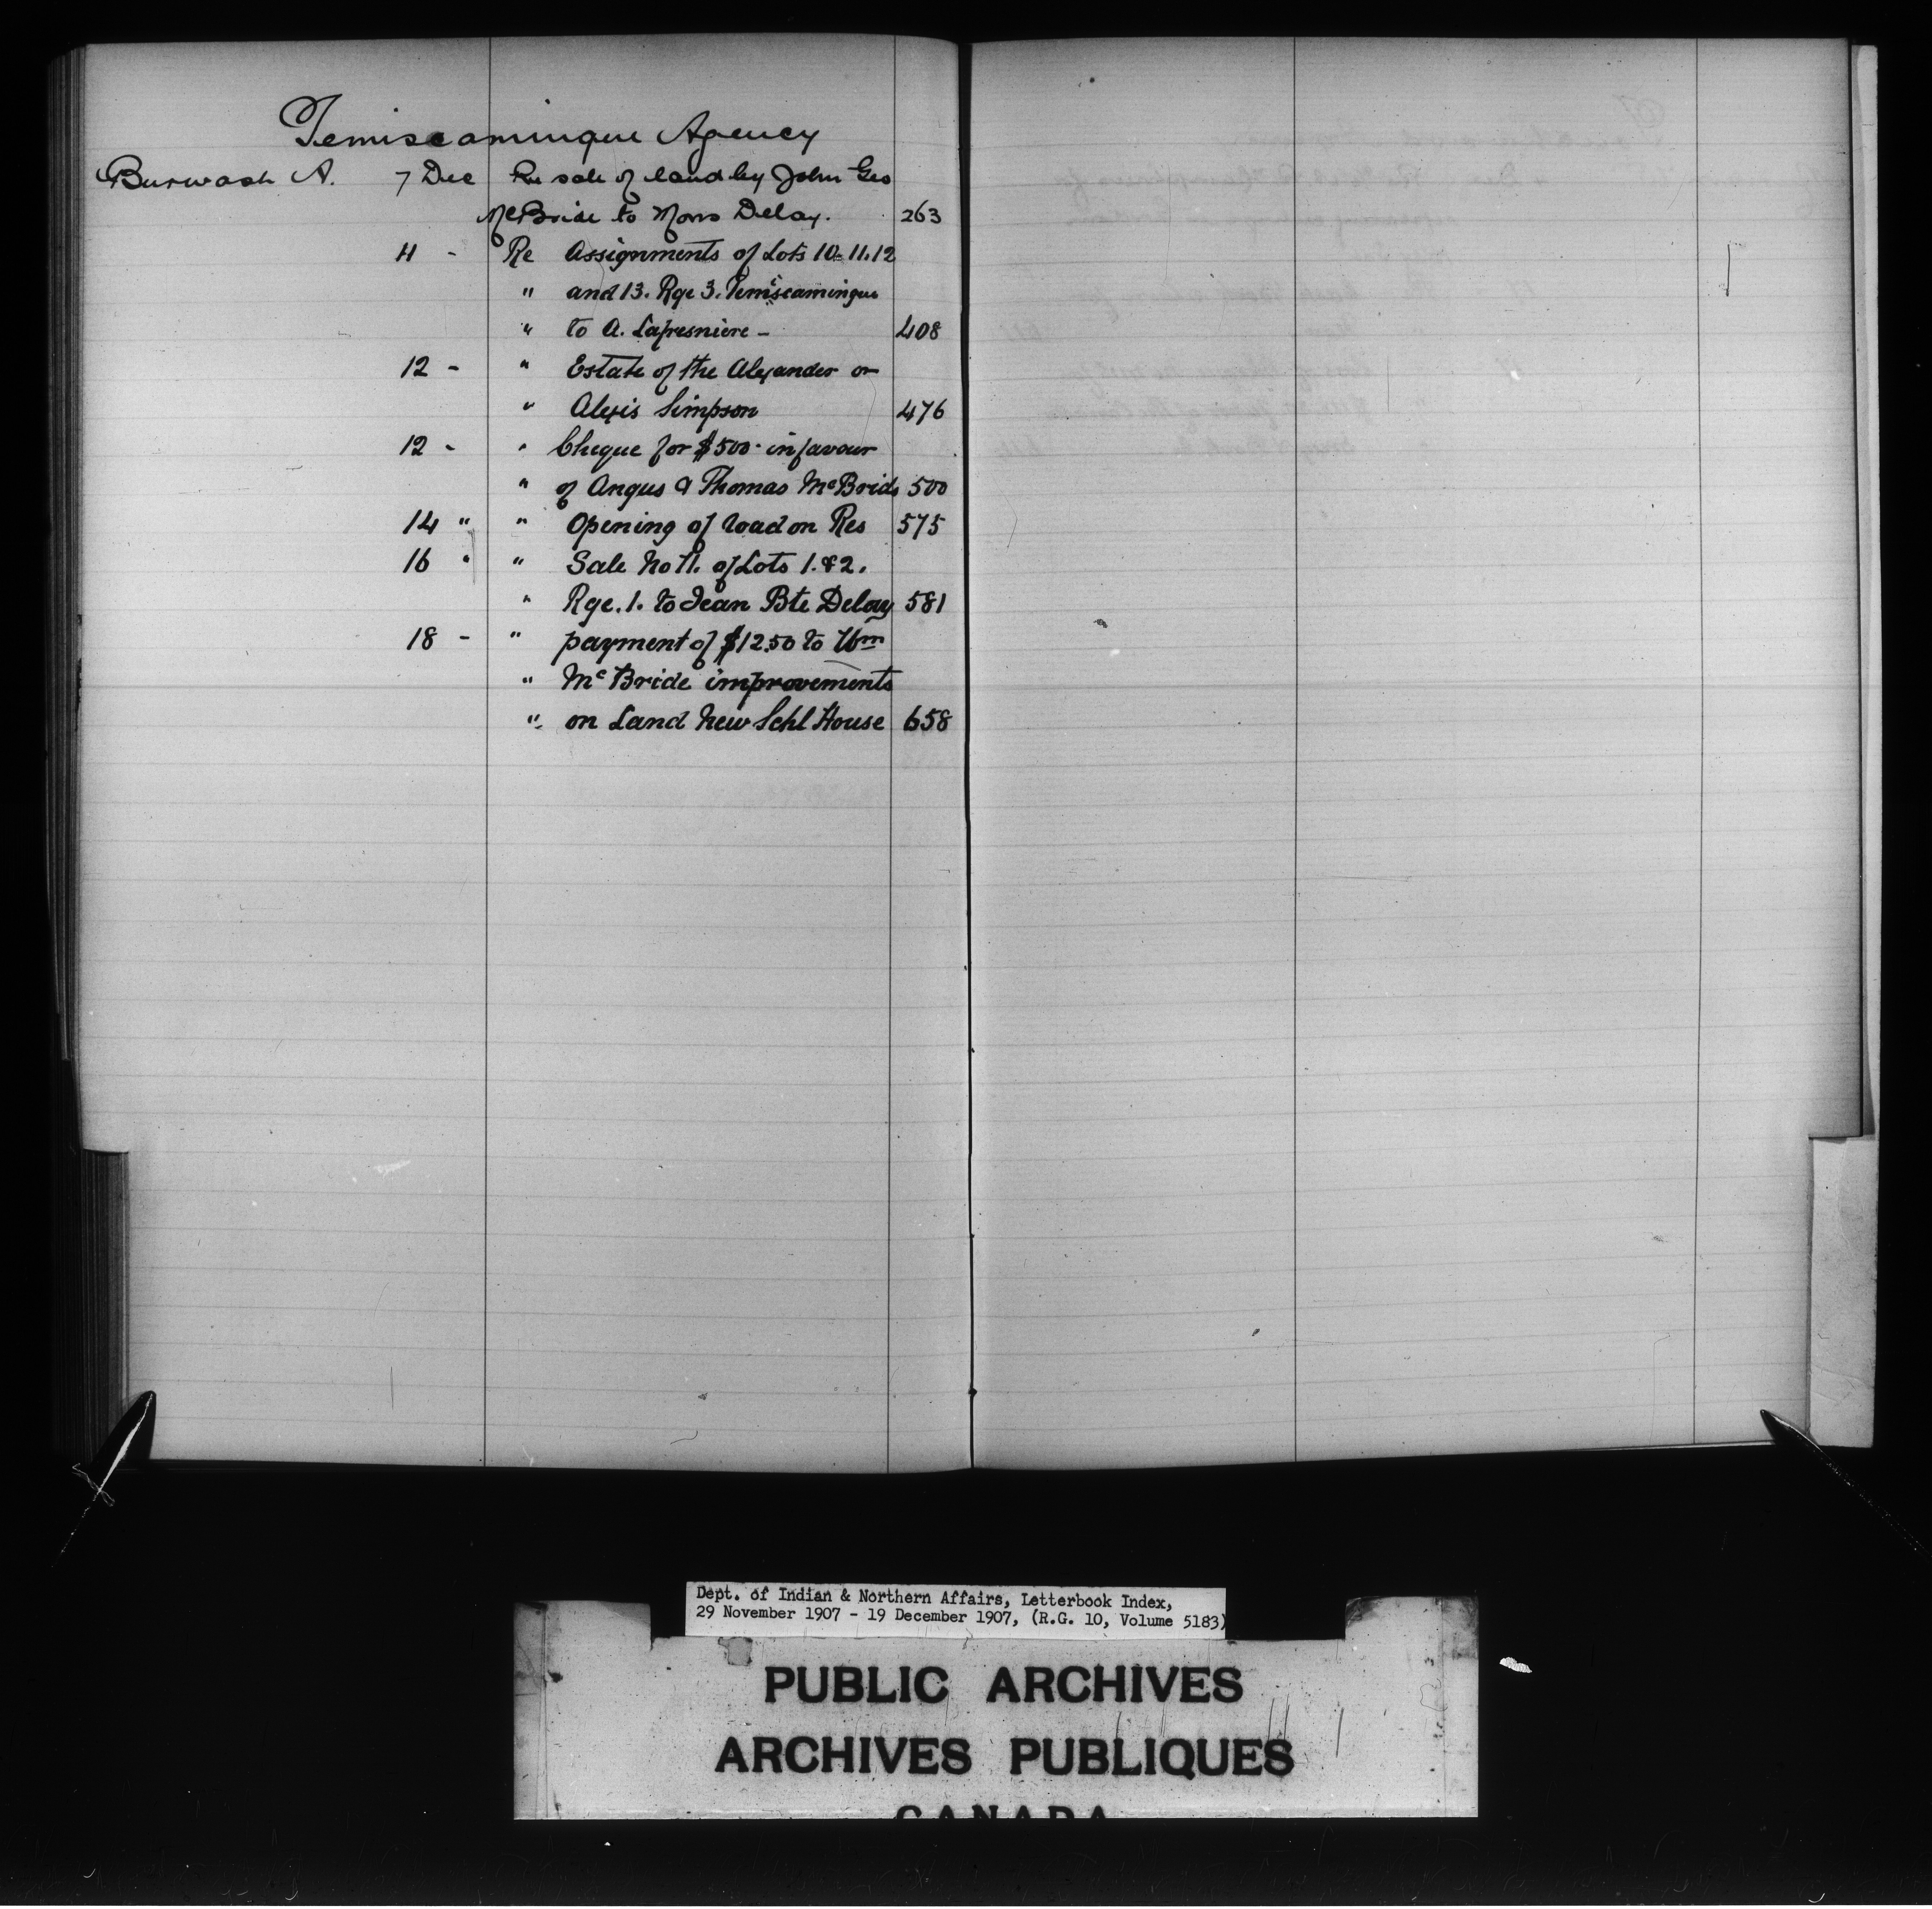 Temiscamingue Agency
Burwash A. 7 Dec Re sale of land by John Geo
McBride to Mons Delay. 263
11 - Re Assignments of Lots 10. 11. 12
" and 13. Rge 3. Temiscamingue
" to A. Lafresniere - 408
12 - " Estate of the Alexander or
" Alexis Simpson 476
12 - " Cheque for $500 - in favour
" of Angus & Thomas McBride 500
14 " " Opening of road on Res 575
16 " " Sale No 11. of Lots 1. & 2.
" Rge. 1. to Jean Bte Delay 581
18 - " payment of $12.50 to Wm
" McBride improvements
" on Land New Schl House 658
Dept. of Indian & Northern Affairs, Letterbook Index,
29 November 1907 - 19 December 1907, (R.G. 10, Volume 5183)
PUBLIC ARCHIVES
ARCHIVES PUBLIQUES
CANADA